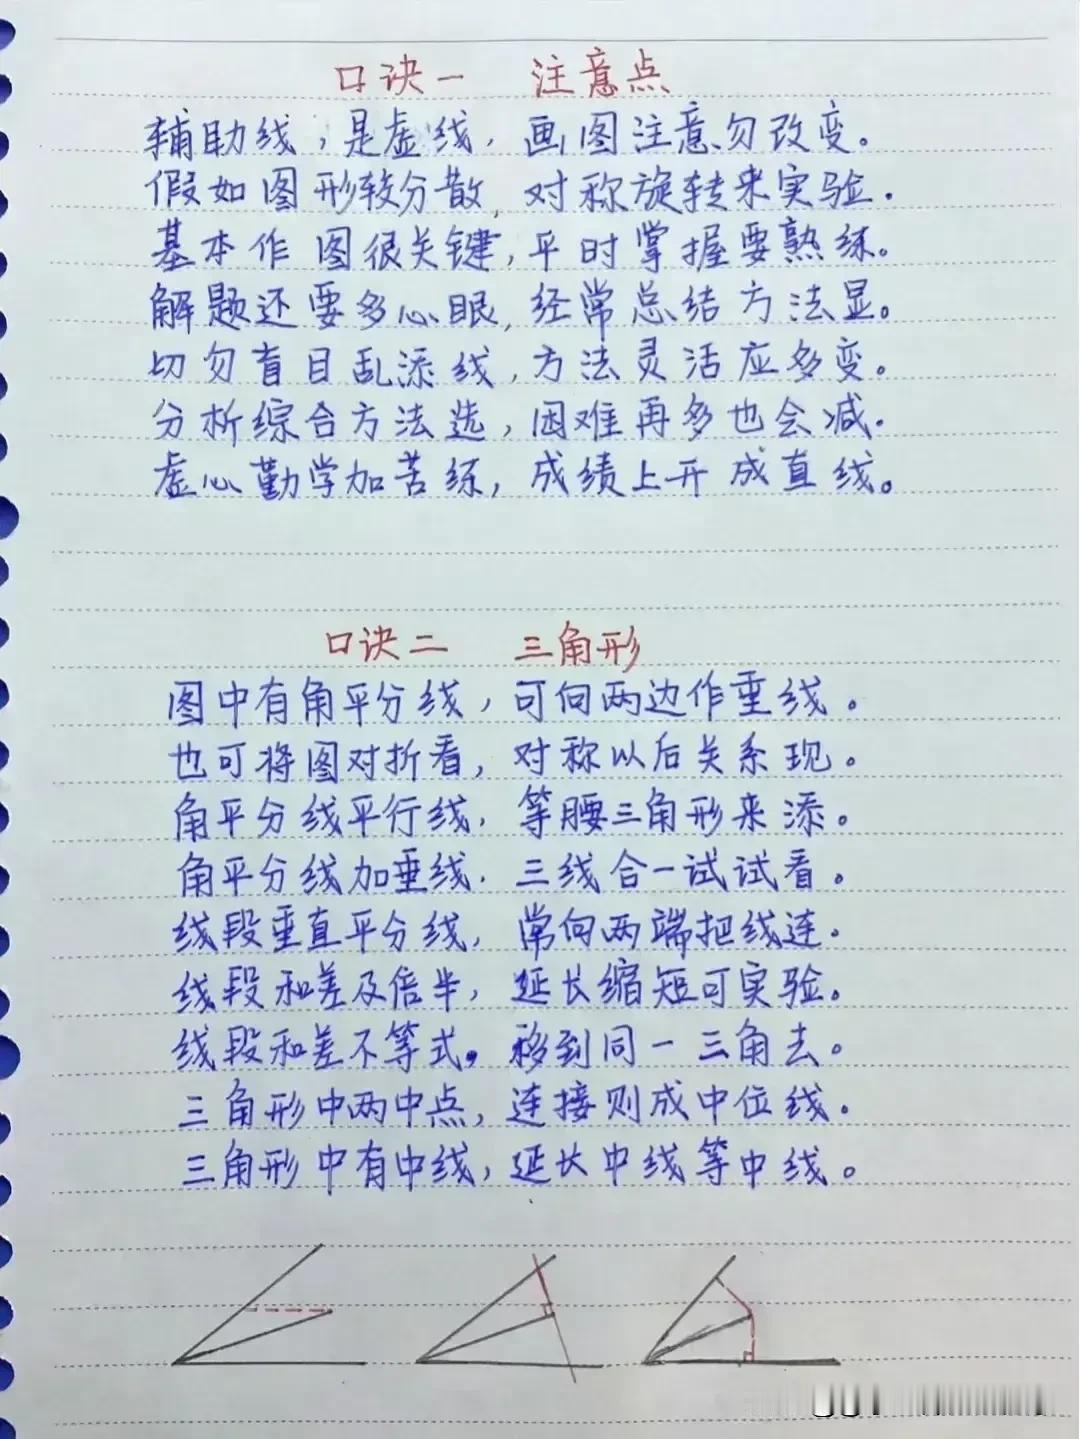 口诀一 注意点
辅助线,是虚线,画图注意勿改变。
假如图形较分散,对称旋转来实验。
基本作图很关键,平时掌握要熟练。
解题还要多心眼,经常总结方法显。
切勿盲目乱添线,方法灵活应多变。
分析综合方法选,困难再多也会减.
虚心勤学加苦练,成绩上升成直线。
口诀二 三角形
图中有角平分线,可向两边作垂线。
也可将图对折看,对称以后关系现。
角平分线平行线,等腰三角形来添。
角平分线加垂线.三线合一试试看。
线段垂直平分线,常向两端把线连.
线段和差及倍半,延长缩短可实验。
线段和差不等式,移到同一三角去。
三角形中两中点,连接则成中位线。
三角形中有中线,延长中线等中线。